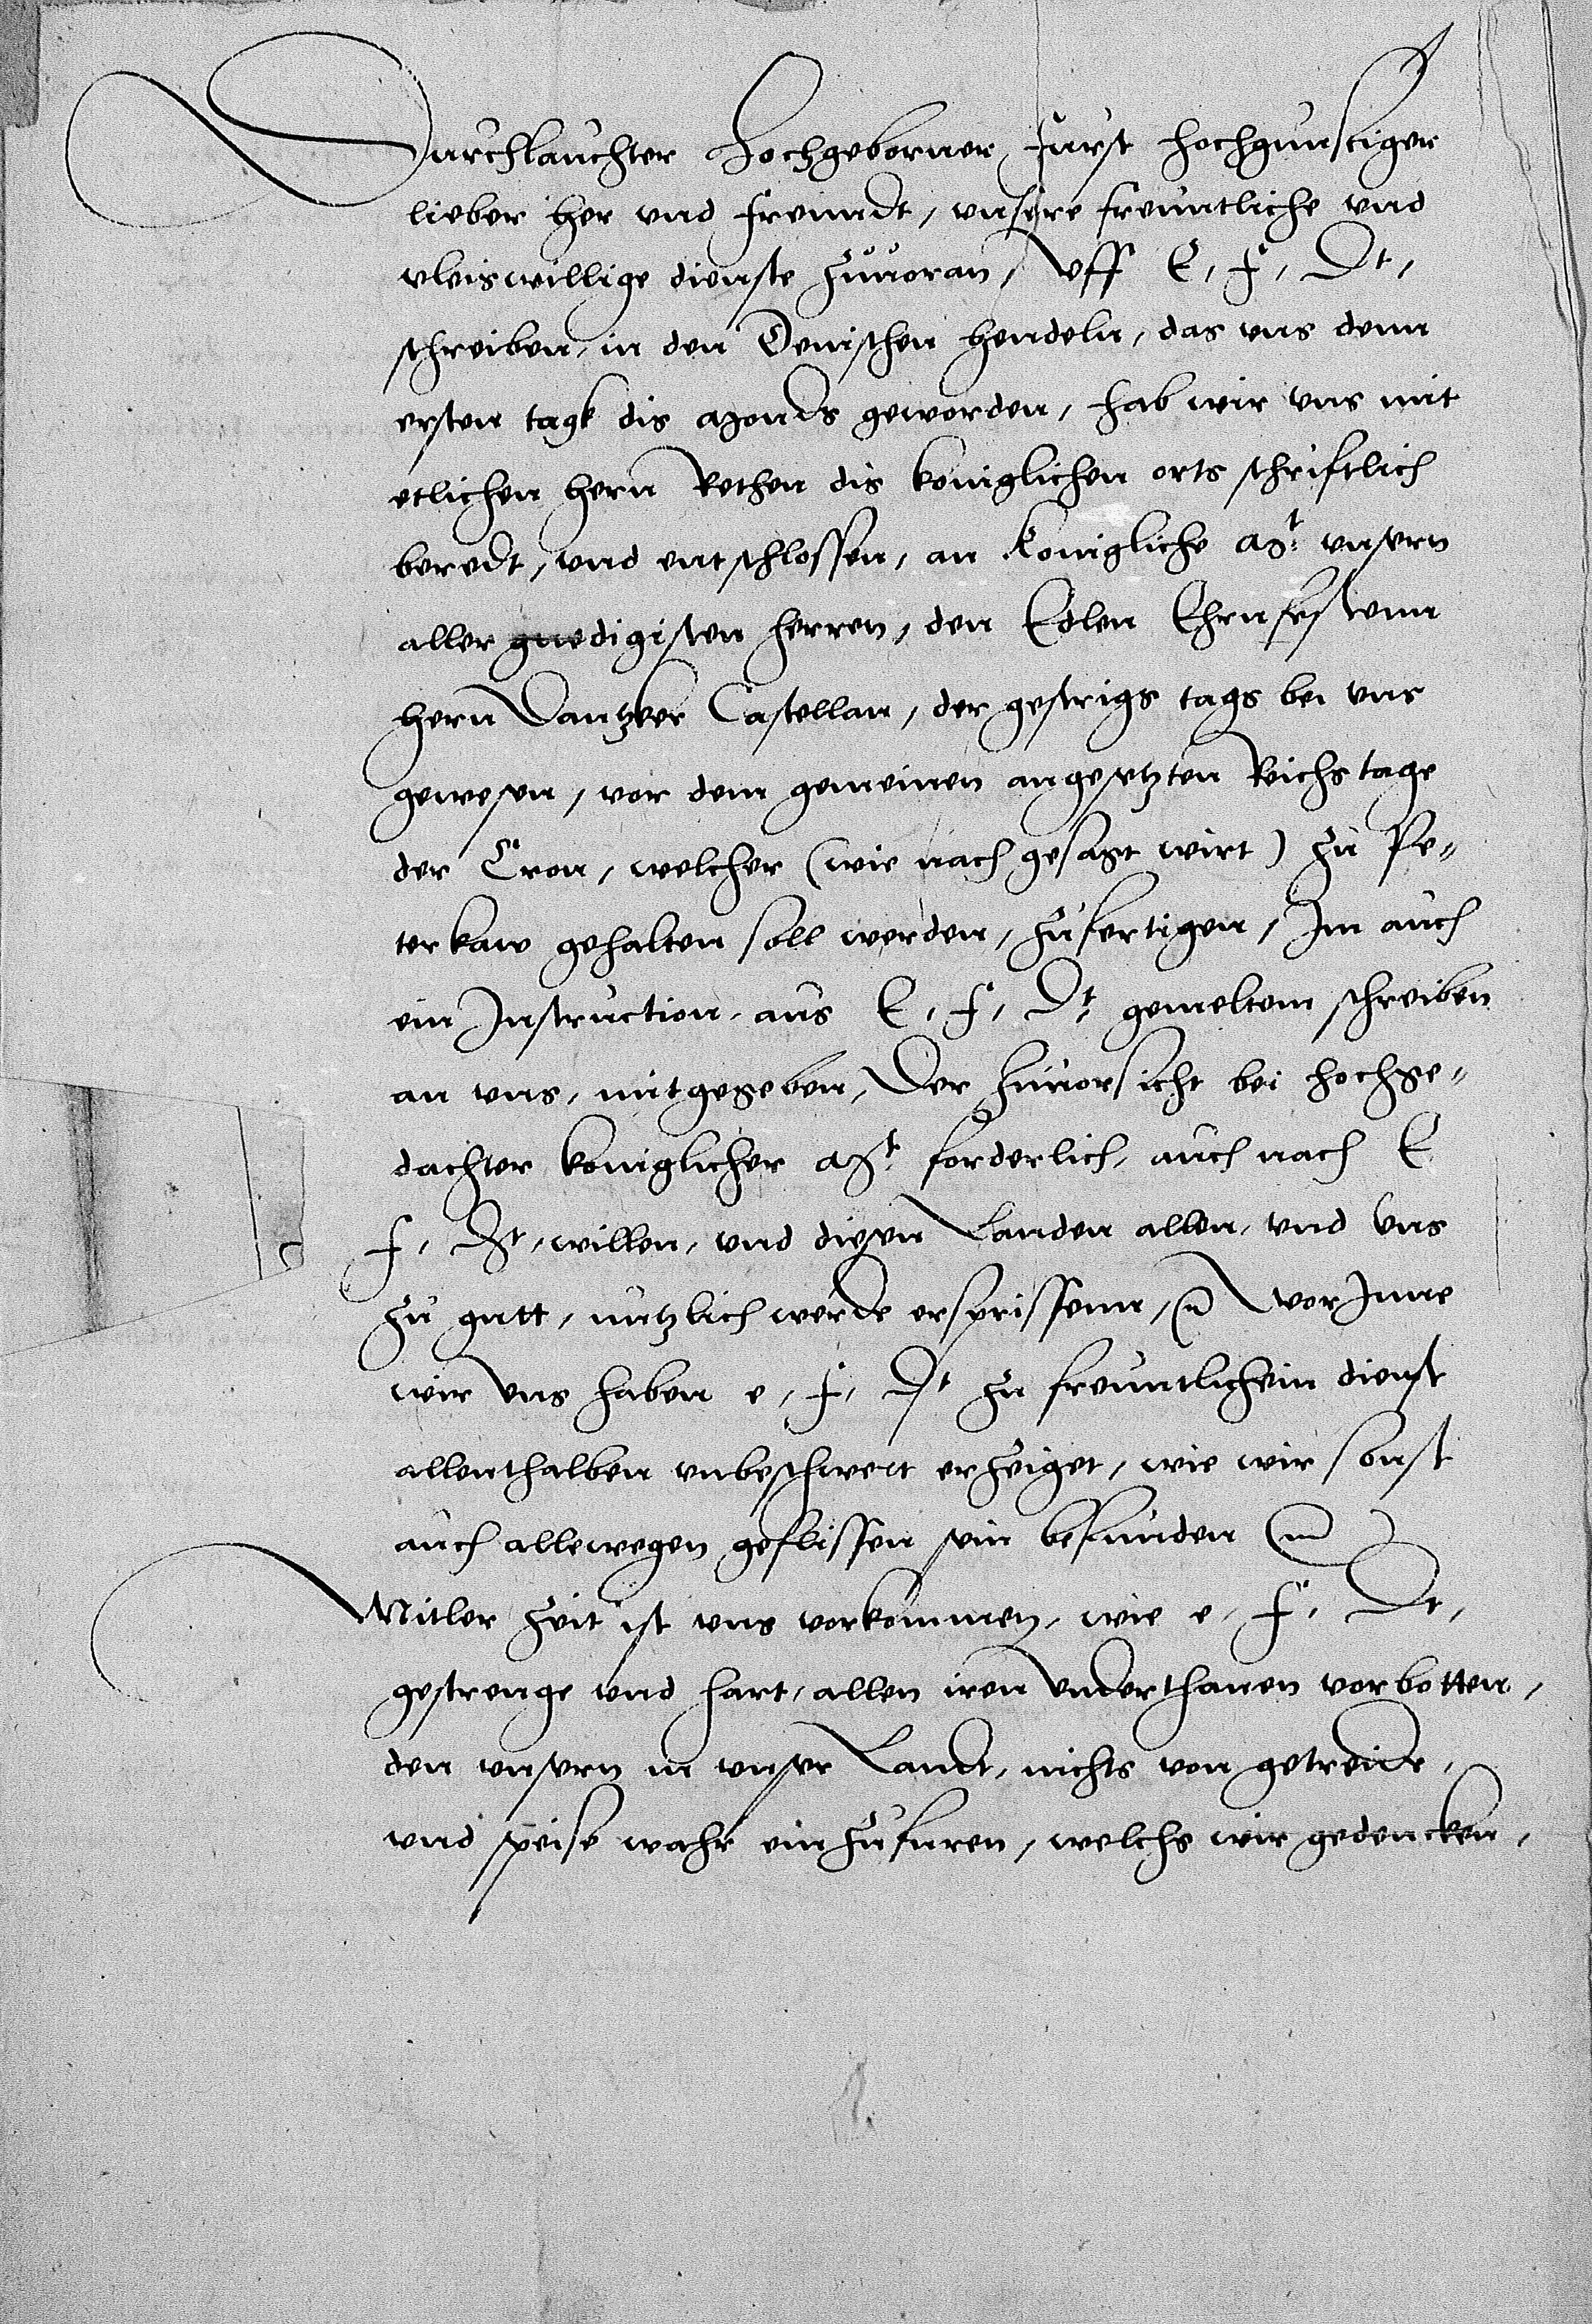 Durchlauchter Hochgeborner furst hochgunstiger
lieber her vnd freundt, vnsere freuntliche vnd
vleiswillige dienste zuuoran, Vff E, f, Dt,
schreiben, in den Denischen hendeln, das vns denn
ersten tagk dis Monds geworden, hab wir vns mit
etlichen hern Rethen dis koniglichen orts schriftlich
beredt, vnd entschlossen, an Konigliche Mt. vnsern
aller gnedigisten herren, den Edlen Ehrnfestenn
hern Dantzker Castellan, der gestrigs tags bei vns
gewesen, vor dem gemeinen angesetzten Reichstage
der Cron, welcher (wie nach gesagt wirt) zu Pe-
terkaw gehalten soll werden, zufertigen, Im auch
ein Instruction, aus E, f, Dt, gemeltem schreiben
an vns, mitgegeben, Der zuuorsicht bei hochge-
dachter koniglicher Mt. forderlich, auch nach E
f, Dt, willen, vnd diesen Landen allen, vnd Vns
zu gutt, nutzlich werde ersprissenn, worInne
wir vns haben e, f, Dt zu freuntlichem dienst
allenthalben vnbeschwert erzeiget, wie wir sonst
auch allewegen geflissen sein befunden
Mitler zeit ist vns vorkommen, wie e, f, Dt,
gestrenge vnd hart, allen iren Vnderthanen vorbotten,
den vnsern in vnser Landt, nichts von getreide,
vnd speise wahr einzufuren, welchs wir gedencken,